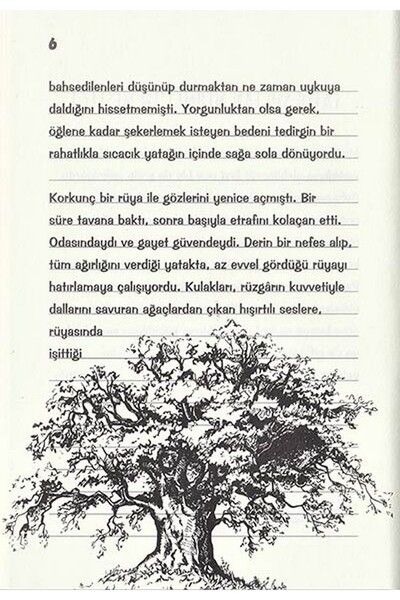 6
bahsedilenleri düşünüp durmaktan ne zaman uykuya
daldığını hissetmemişti. Yorgunluktan olsa gerek,
öğlene kadar şekerlemek isteyen bedeni tedirgin bir
rahatlıkla sıcacık yatağın içinde sağa sola dönüyordu.
Korkunç bir rüya ile gözlerini yenice açmıştı. Bir
süre tavana baktı, sonra başıyla etrafını kolaçan etti.
Odasındaydı ve gayet güvendeydi. Derin bir nefes alıp,
tüm ağırlığını verdiği yatakta, az evvel gördüğü rüyayı
hatırlamaya çalışıyordu. Kulakları, rüzgârın kuvvetiyle
dallarını savuran ağaçlardan çıkan hışırtılı seslere,
rüyasında
işittiği